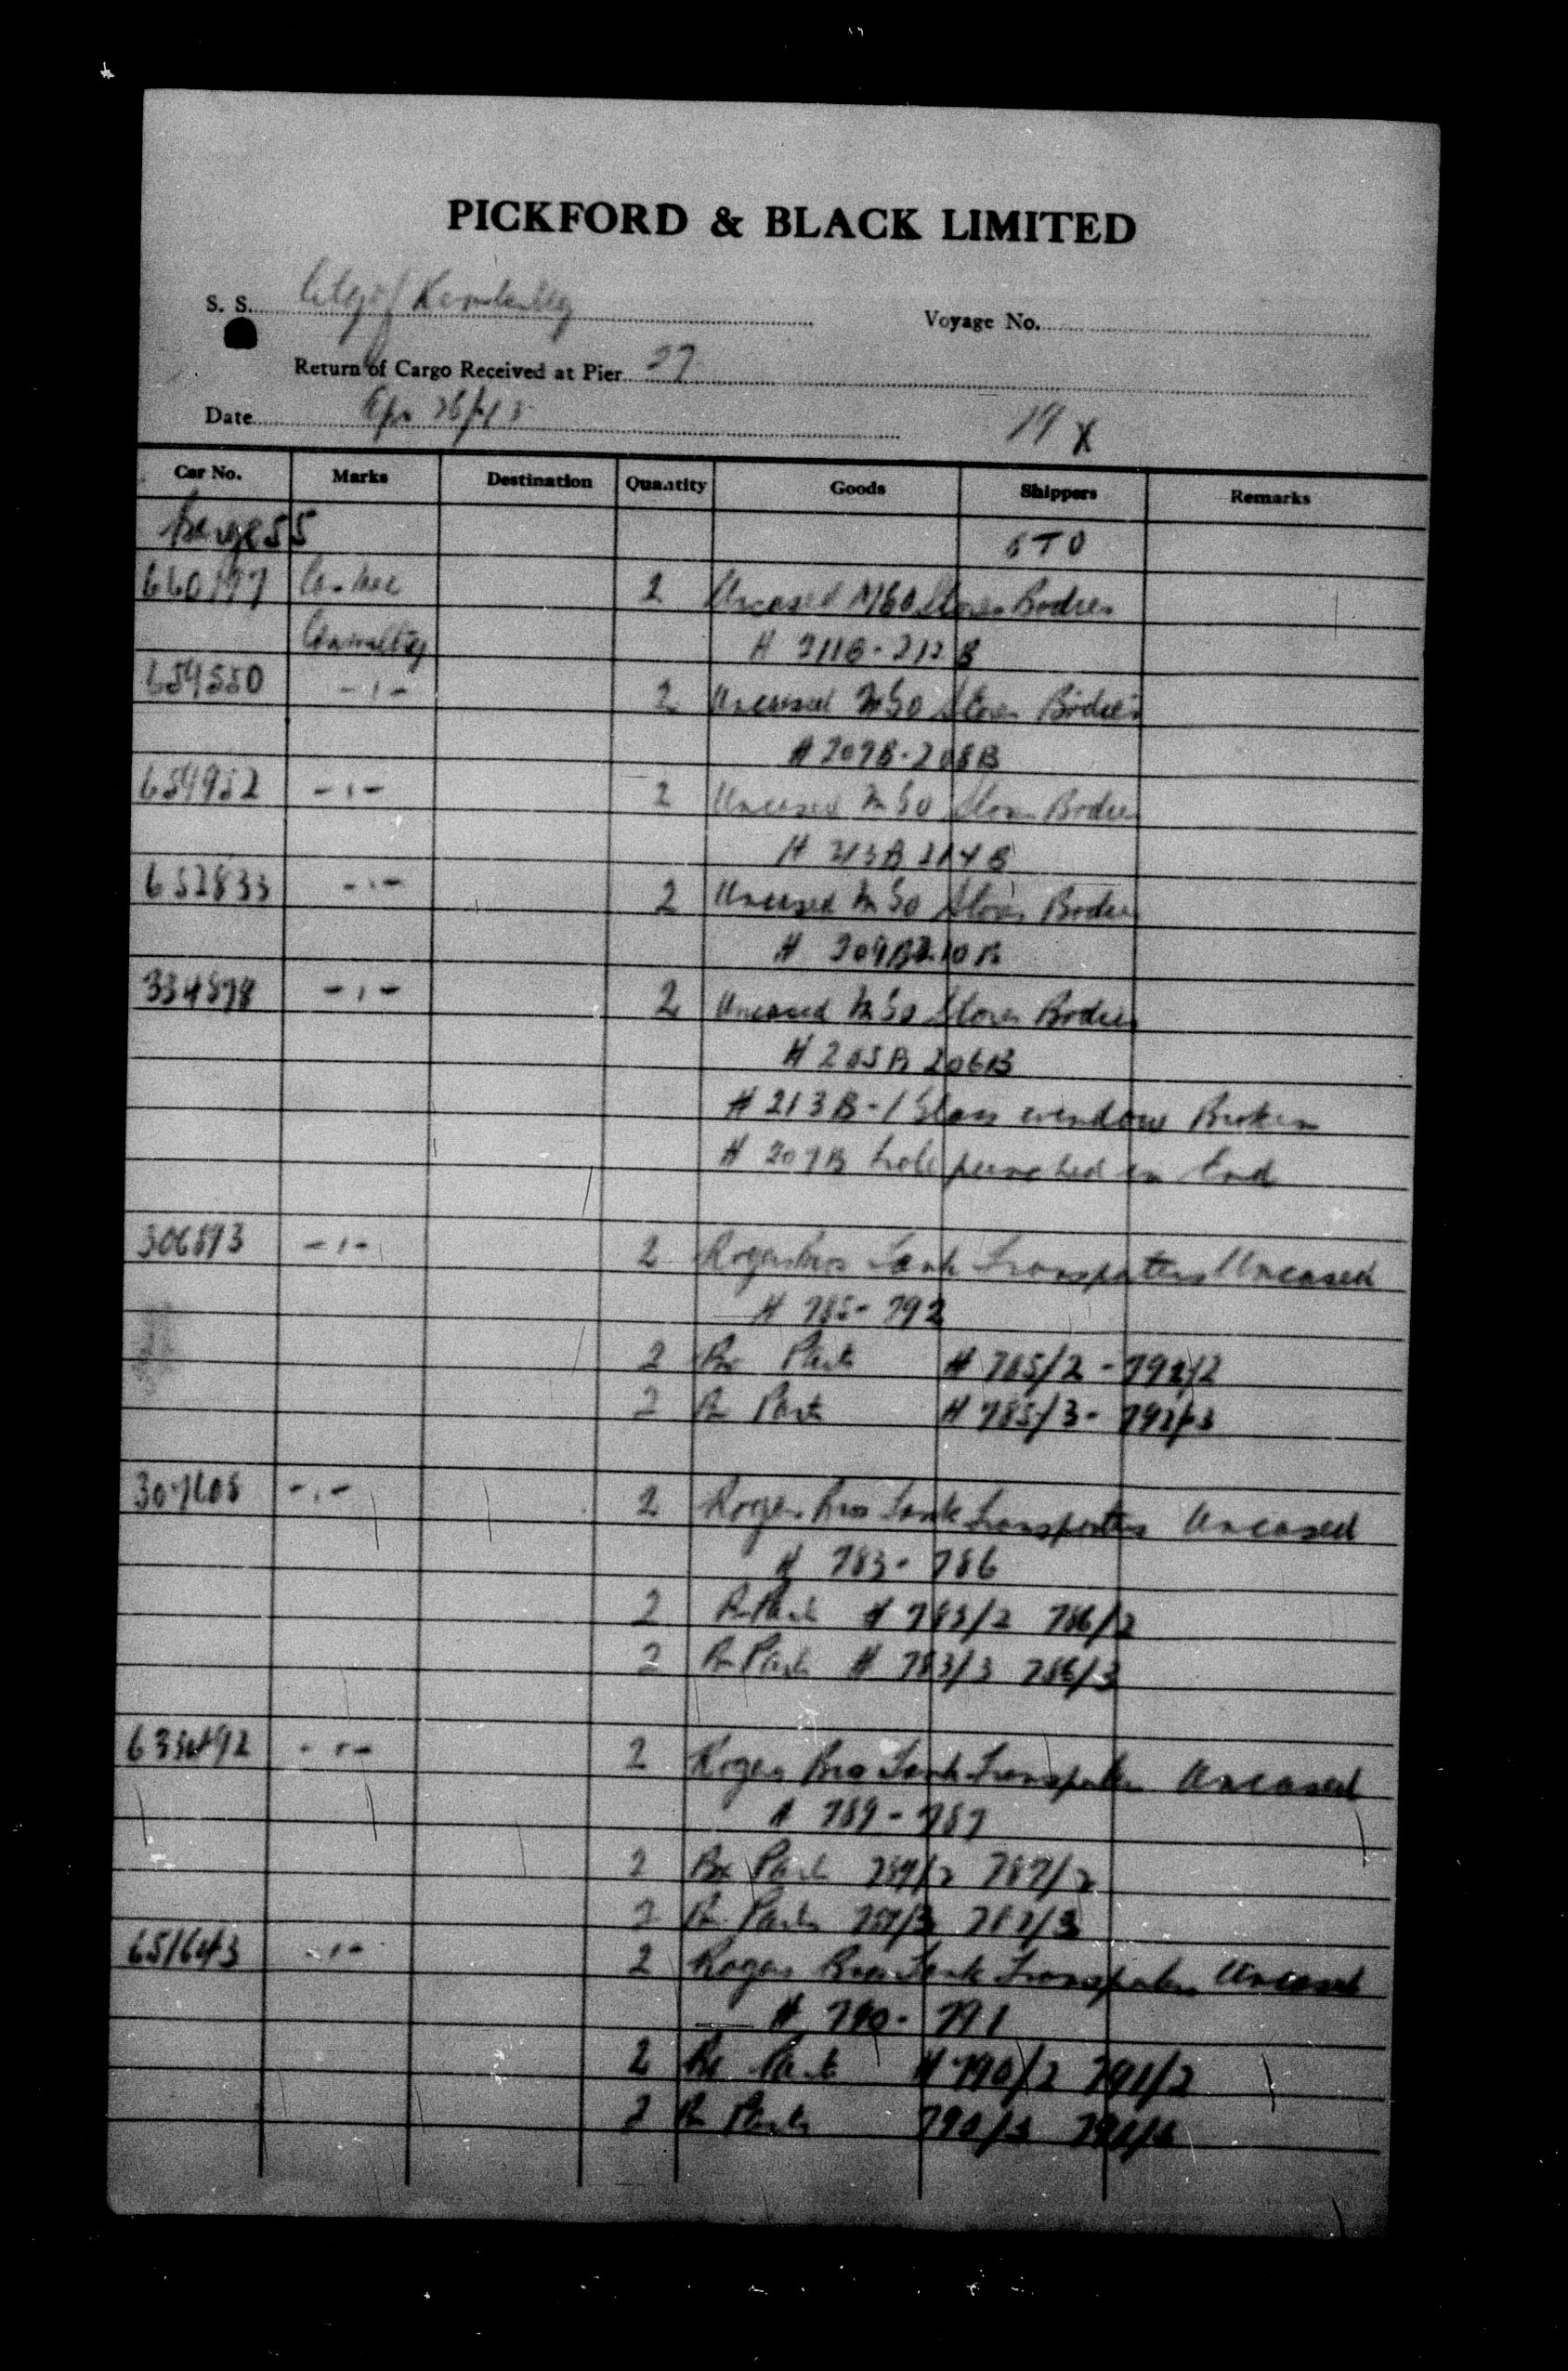 PICKFORD & BLACK LIMITED
S. S. City of Kimberley
Voyage No.
Return of Cargo Received at Pier 27
Date Apr 26/43
19 X
Car No. Marks Destination Quantity Goods Shippers Remarks
Barge 55 STO
2 Uncased M50 Stores Bodies
H 211B - 212B
-"- 2 Uncased M50 Stores Bodies
H 207B - 208B
654952 -"- 2 Uncased M50 Stores Bodies
H 213B 214B
652833 -"- 2 Uncased M50 Stores Bodies
H 209B 210B
334878 -"- 2 Uncased M50 Stores Bodies
H 205B 206B
H 213B - 1 Glass window Broken
H 207B hole punched in End
306893 -"- 2 Rogers Bros Tank Transporters Uncased
H 785 - 792
2 Bx Parts H 785/2 - 792/2
2 Bx Parts H 785/3 - 792/3
307608 -"- 2 Rogers Bros Tank Transporters Uncased
H 783 - 786
2 Bx Parts H 783/2 786/2
2 Bx Parts H 783/3 786/3
-"- 2 Rogers Bros Tank Transporters Uncased
H 789 - 787
2 Bx Parts 789/2 787/2
2 Bx Parts 789/3 787/3
651643 -"- 2 Rogers Bros Tank Transporters Uncased
H 790 - 791
2 Bx Parts H 790/2 791/2
2 Bx Parts 790/3 791/3